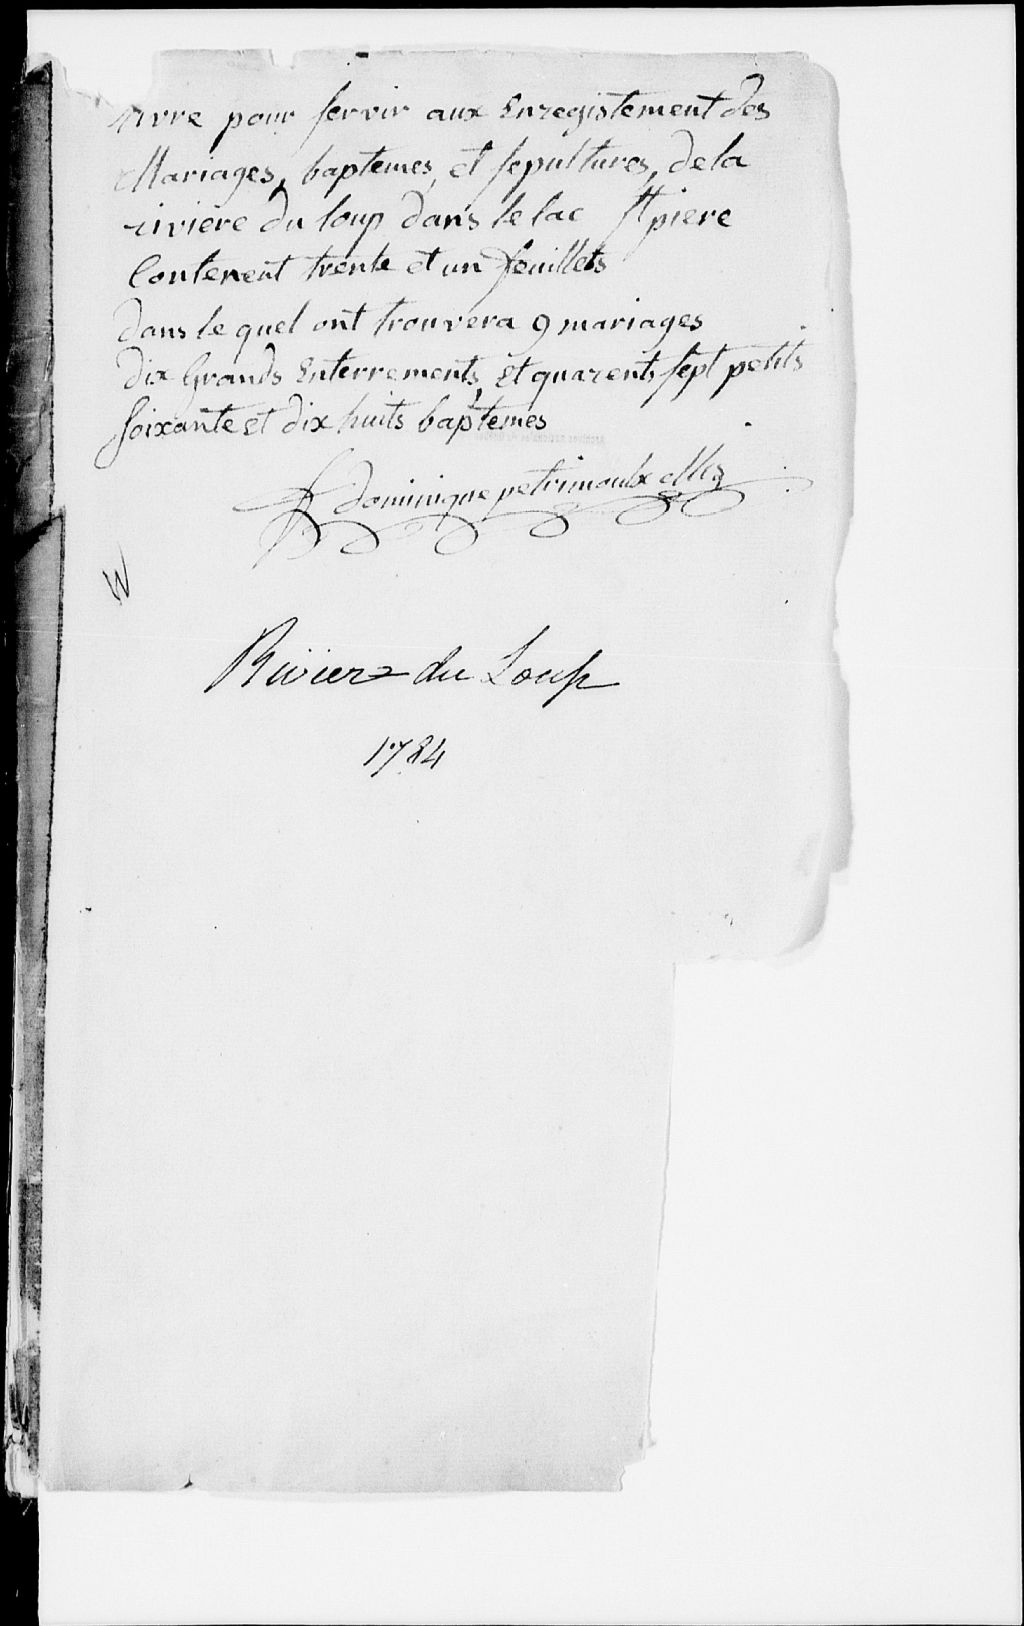 Livre pour servir aux Enregistement des
Mariages, baptemes, et sepultures, de la
riviere du loup dans le lac St piere
Contenent trente et un feuillets
dans le quel ont trouvera 9 mariages
dix Grands Enterrements, Et quarents sept petits
soixante et dix huits baptemes
dominique petrimoulx
W
Riviere du Loup
1784